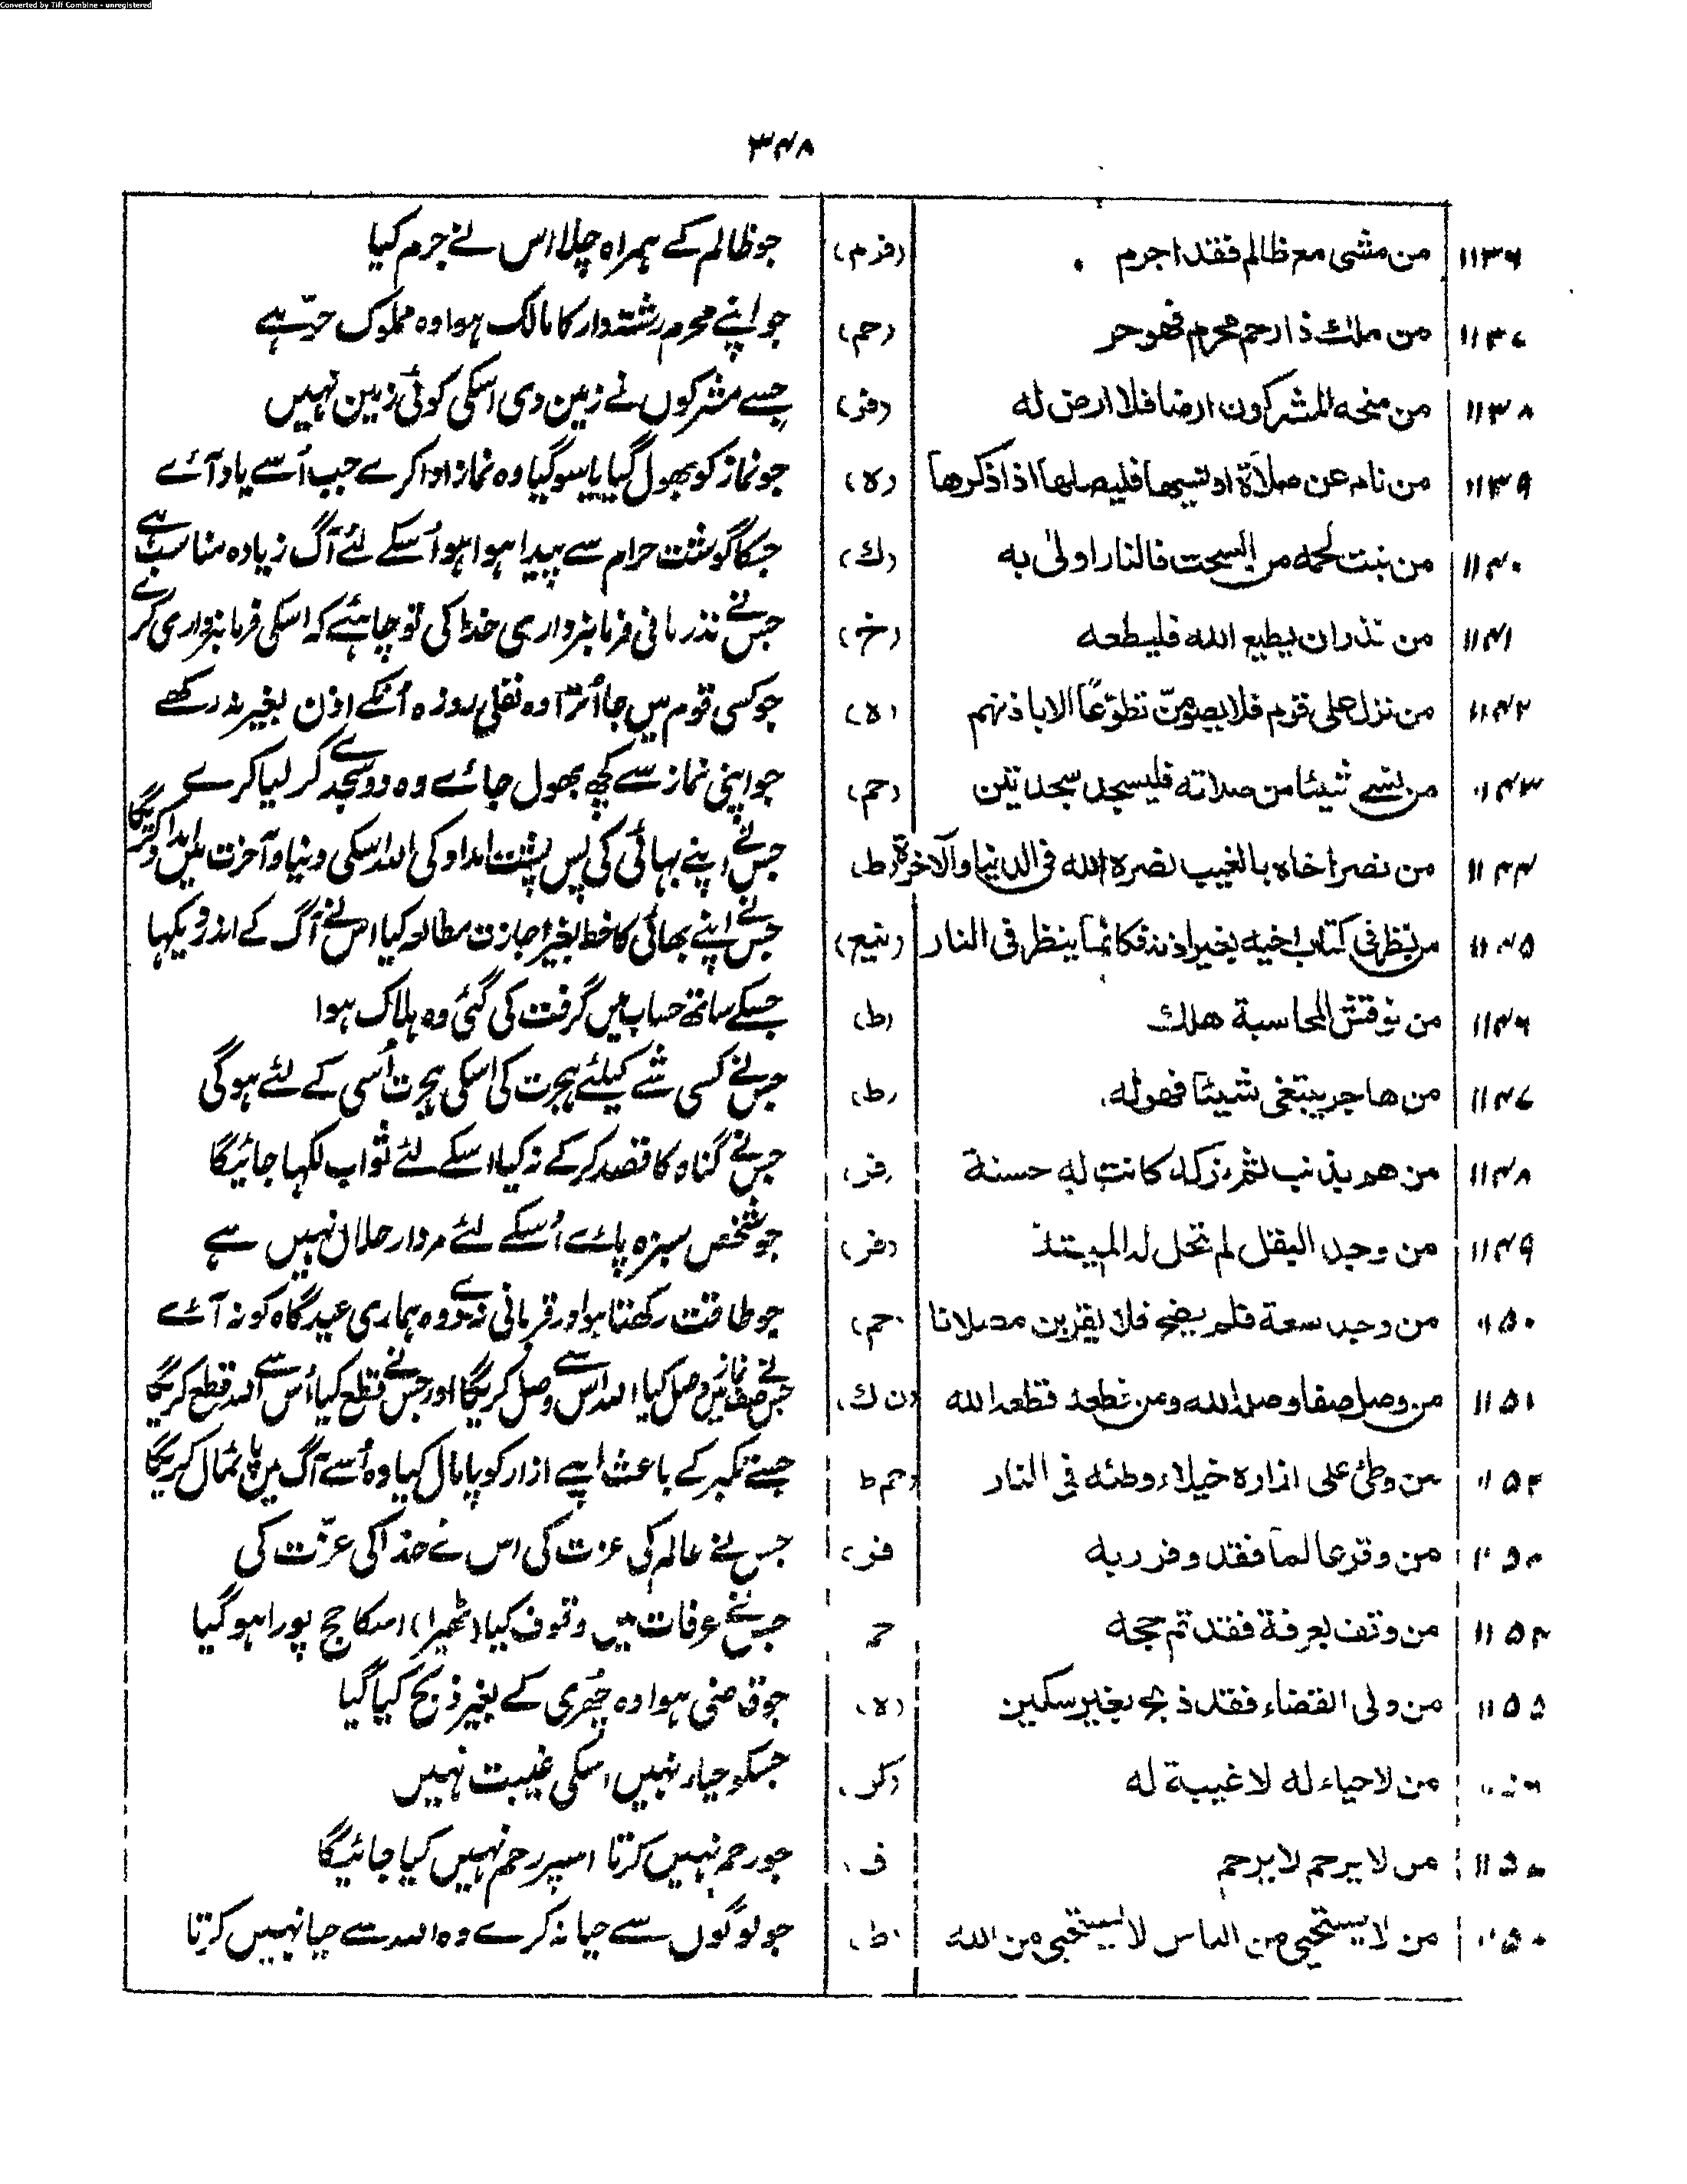 Converted by Tiff Combine - unregistered
۳۴۸
۱۱۳۶ من مشى مع ظالم فقد اجرم (فرم) جو ظالم کے ہمراہ چلا اس نے جرم کیا
۱۱۳۷ من ملك ذا رحم محرم فهو حر (حم) جو اپنے محرم رشتہ دار کا مالک ہوا وہ مملوک حر ہے
۱۱۳۸ من منحه المشركون ارضا فلا ارض له (فر) جسے مشرکوں نے زمین دی اسکی کوئی زمین نہیں
۱۱۳۹ من نام عن صلاة او نسيها فليصلها اذا ذكرها (ه) جو نماز کو بھول گیا یا سو گیا وہ نماز ادا کرے جب اُسے یاد آئے
۱۱۴۰ من نبت لحمه من السحت فالنار اولى به (ك) جسکا گوشت حرام سے پیدا ہوا ہو اُسکے لئے آگ زیادہ مناسب ہے
۱۱۴۱ من نذر ان يطيع الله فليطعه (خ) جس نے نذر مانی فرمانبرداری خدا کی تو چاہئے کہ اسکی فرمانبرداری کرے
۱۱۴۲ من نزل على قوم فلا يصومن تطوعاً الا باذنهم (ه) جو کسی قوم میں جا اُترا وہ نفلی روزہ اُنکے اذن بغیر نہ رکھے
۱۱۴۳ من نسى شيئا من صلاته فليسجد سجدتين (حم) جو اپنی نماز سے کچھ بھول جائے وہ دو سجدے کر لیا کرے
۱۱۴۴ من نصر اخاه بالغيب نصره الله فى الدنيا والآخرة (ط) جس نے اپنے بہائی کی پس پشت امداد کی اللہ اسکی دنیا و آخرت میں امداد کریگا
۱۱۴۵ من نظر فى كتاب اخيه بغير اذنه فكانما ينظر فى النار جس نے اپنے بھائی کا خط بغیر اجازت مطالعہ کیا اس نے آگ کے اندر دیکہا
۱۱۴۶ من نوقش المحاسبة هلك (ط) جسکے ساتھ حساب میں گرفت کی گئی وہ ہلاک ہوا
۱۱۴۷ من هاجر يبتغى شيئا فهو له (ط) جس نے کسی شے کیلئے ہجرت کی اسکی ہجرت اُسی کے لئے ہو گی
۱۱۴۸ من هم بذنب ثم تركه كانت له حسنة (فر) جس نے گناہ کا قصد کر کے نہ کیا اسکے لئے ثواب لکہا جائیگا
۱۱۴۹ من وجد البقل لم تحل له الميتة (فر) جو شخص سبزہ پائے اُسکے لئے مردار حلال نہیں ہے
۱۱۵۰ من وجد سعة فلم يضح فلا يقربن مصلانا (حم) جو طاقت رکھتا ہو اور قربانی نہ دے وہ ہماری عیدگاہ کو نہ آئے
۱۱۵۱ من وصل صفا وصله الله ومن قطعه قطعه الله (ن ك) جس نے صف نماز میں وصل کیا اللہ اس سے وصل کریگا اور جس نے قطع کیا اُس سے اللہ قطع کریگا
۱۱۵۲ من وطئ على ازاره خيلاء وطئه فى النار (حم ط) جسنے تکبر کے باعث اپنے ازار کو پامال کیا وہ اُسے آگ میں پائمال کریگا
۱۱۵۳ من وقر عالماً فقد وقر ربه (فر) جس نے عالم کی عزت کی اس نے خدا کی عزّت کی
۱۱۵۴ من وقف بعرفة فقد تم حجه حم جس نے عرفات میں وقوف کیا (ٹھیرا) اسکا حج پورا ہو گیا
۱۱۵۵ من ولى القضاء فقد ذبح بغير سكين (ه) جو قاضی ہوا وہ چُھری کے بغیر ذبح کیا گیا
من لا حياء له لا غيبة له (كر) جسکو حیاء نہیں اسکی غیبت نہیں
۱۱۵۷ من لا يرحم لا يرحم ق جو رحم نہیں کرتا اسپر رحم نہیں کیا جائیگا
من لا يستحيى من الناس لا يستحيى من الله (ط) جو لوگوں سے حیا نہ کرے وہ اللہ سے حیا نہیں کرتا